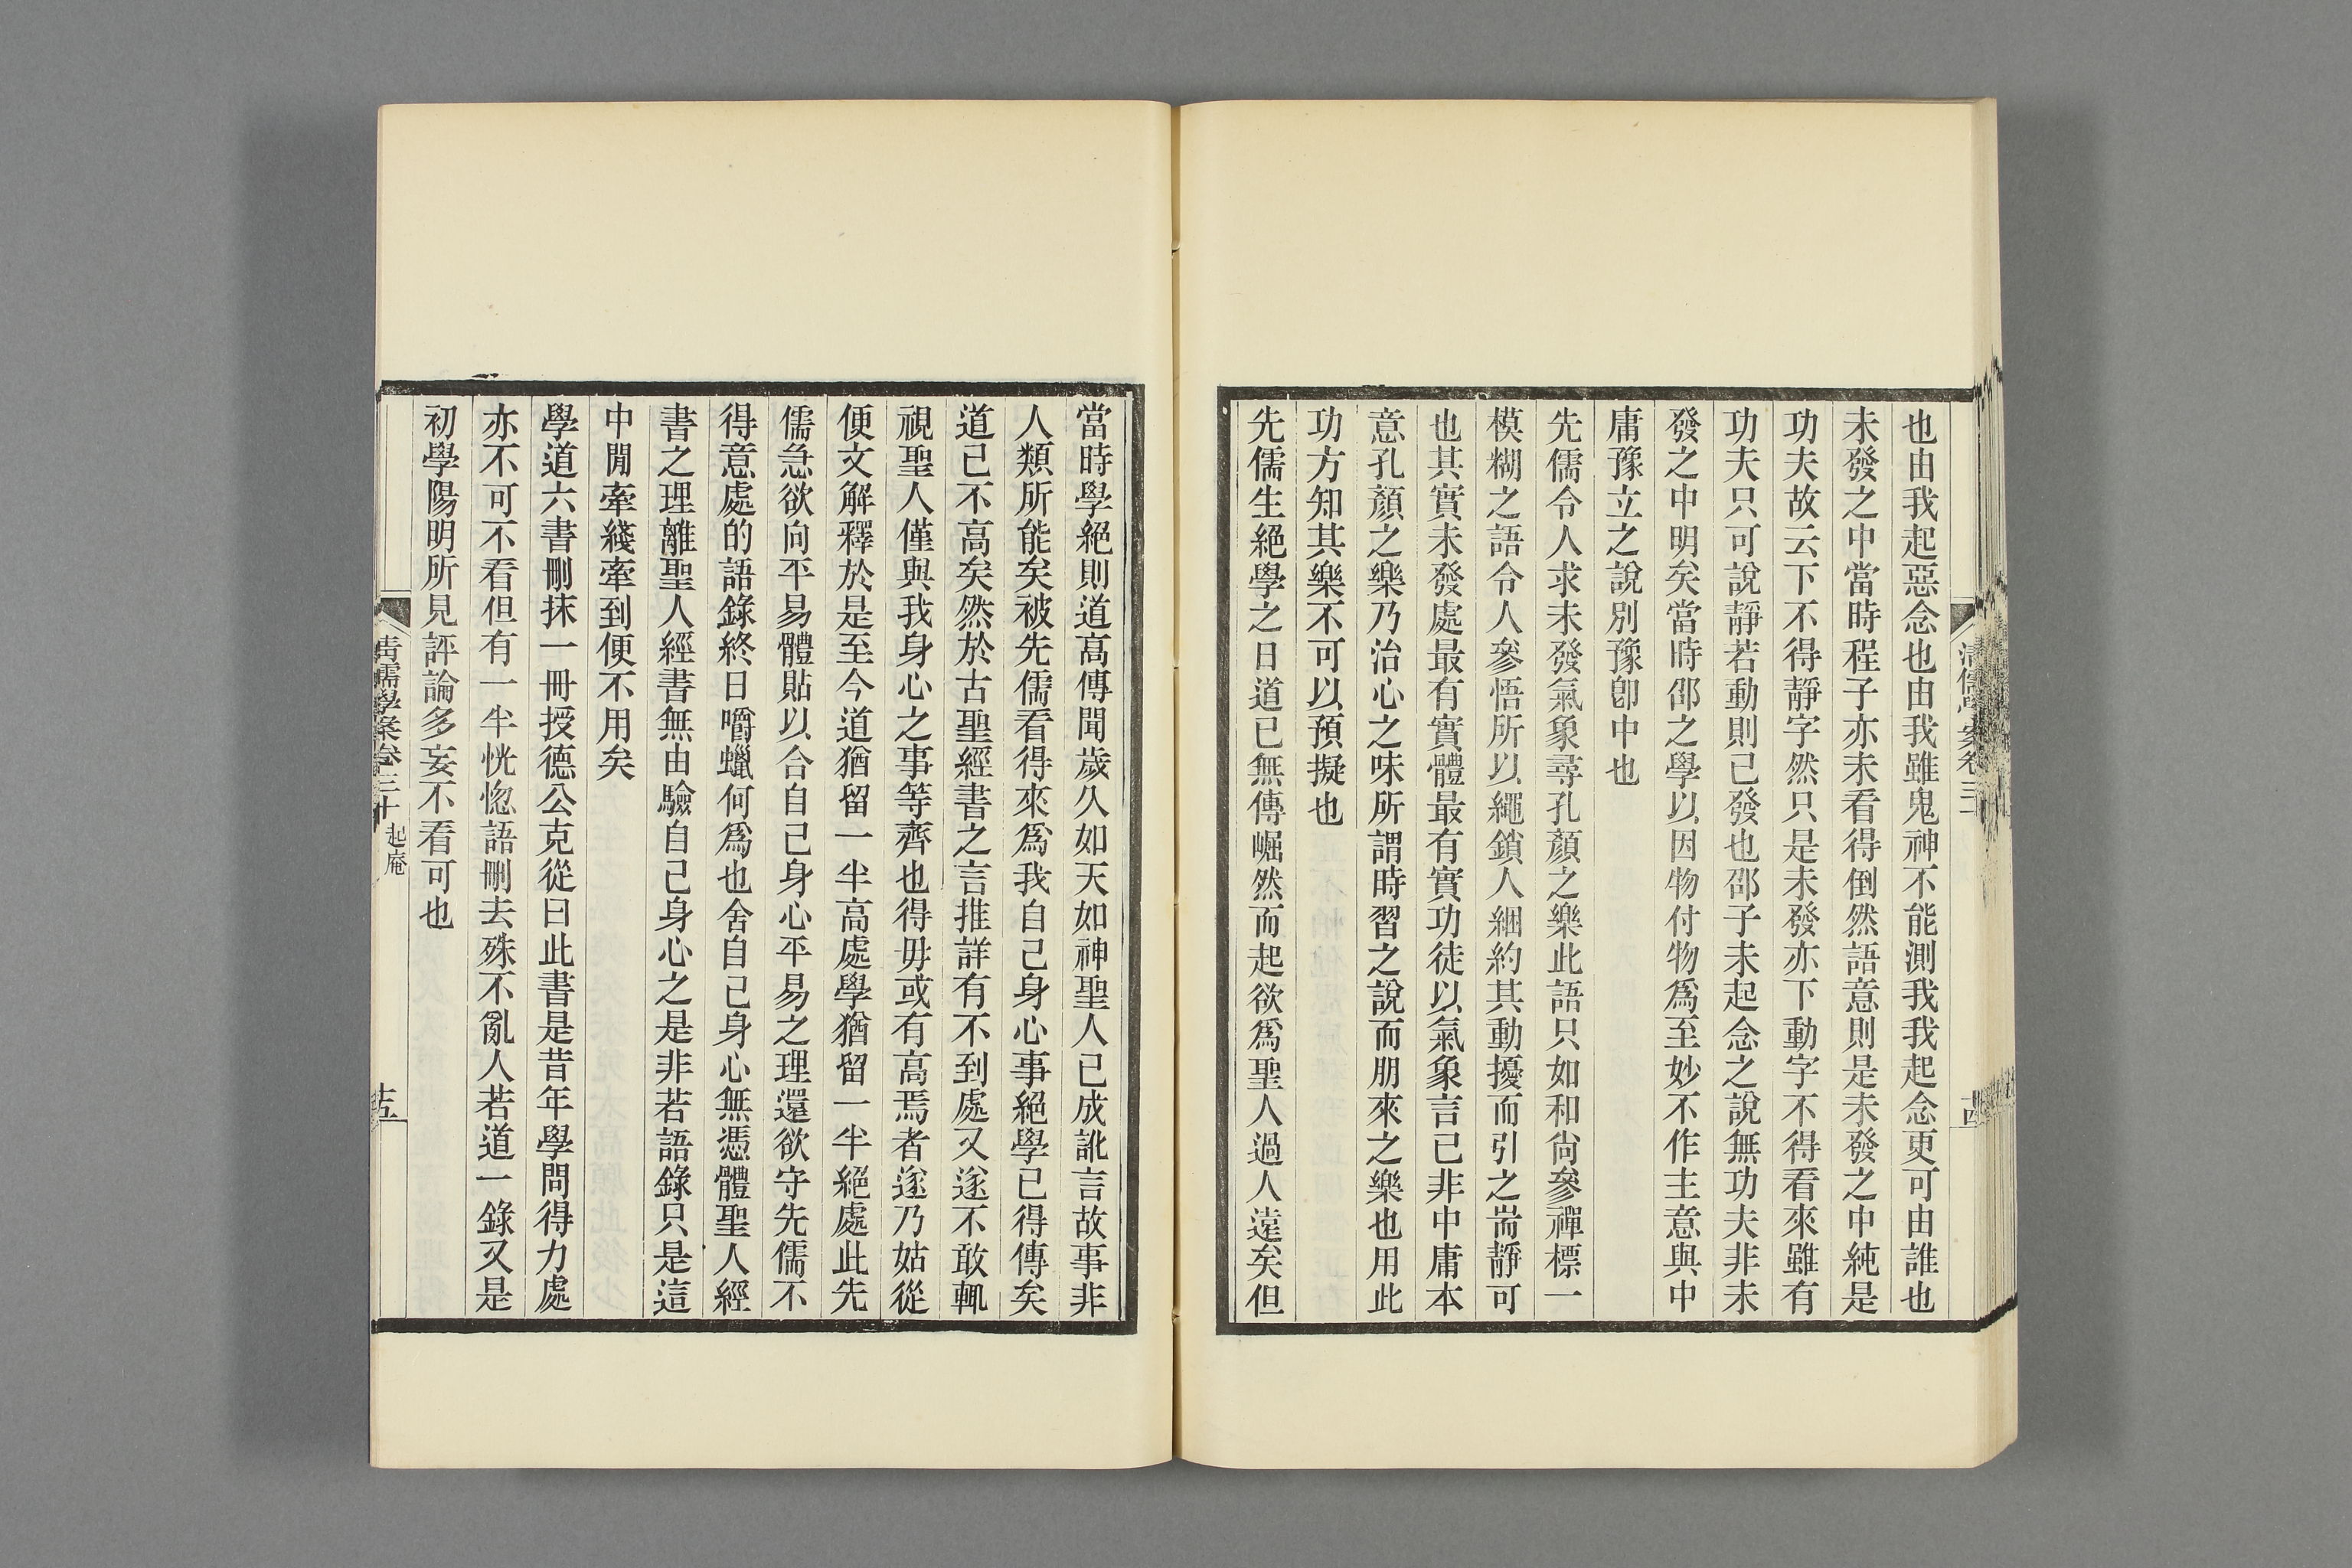 也由我起惡念也由我雖鬼神不能測我我起念更可由誰也
未發之中當時程子亦未看得倒然語意則是未發之中純是
功夫故云下不得靜字然只是未發亦下動字不得看來雖有
功夫只可說靜若動則已發也邵子未起念之說無功夫非未
發之中明矣當時邵之學以因物付物爲至妙不作主意與中
庸豫立之說別豫卽中也
先儒令人求未發氣象尋孔顏之樂此語只如和尙參禪標一
模糊之語令人參悟所以繩鎖人綑約其動擾而引之耑靜可
也其實未發處最有實體最有實功徒以氣象言已非中庸本
意孔顏之樂乃治心之味所謂時習之說而朋來之樂也用此
功方知其樂不可以預擬也
先儒生絕學之日道已無傳崛然而起欲爲聖人過人遠矣但
清儒學案卷三十
十四
當時學絕則道高傳聞歲久如天如神聖人已成訛言故事非
人類所能矣被先儒看得來爲我自己身心事絕學已得傳矣
道已不高矣然於古聖經書之言推詳有不到處又遂不敢輒
視聖人僅與我身心之事等齊也得毋或有高焉者遂乃姑從
便文解釋於是至今道猶留一半高處學猶留一半絕處此先
儒急欲向平易體貼以合自己身心平易之理還欲守先儒不
得意處的語錄終日嚼蠟何爲也舍自己身心無憑體聖人經
書之理離聖人經書無由驗自己身心之是非若語錄只是這
中閒牽綫牽到便不用矣
學道六書刪抹一冊授德公克從曰此書是昔年學問得力處
亦不可不看但有一半恍惚語刪去殊不亂人若道一錄又是
初學陽明所見評論多妄不看可也
清儒學案卷三十 起庵
十五